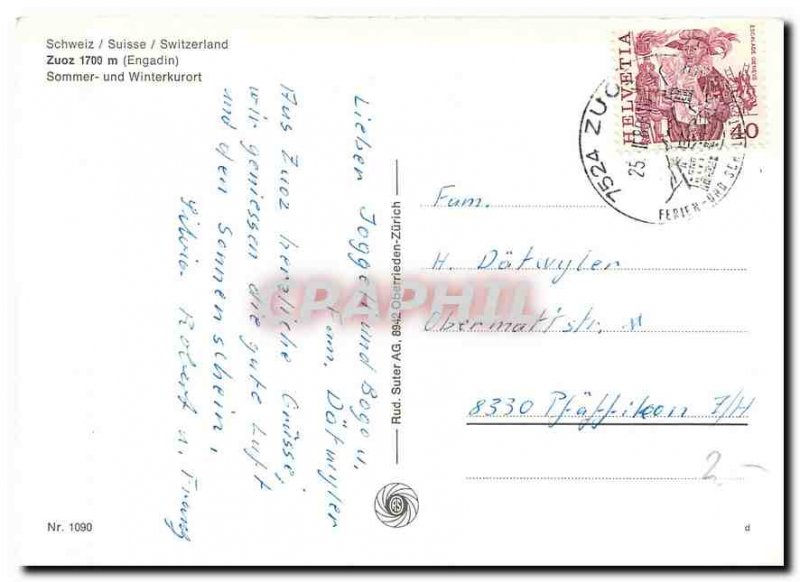 Schweiz / Suisse / Switzerland
Zuoz 1700 m (Engadin)
Sommer- und Winterkurort
HELVETIA
ESCALADE GENÈVE
40
7524 ZUOZ
25.
FERIEN- UND
Lieben Joggeli und Bogo u.
Fam. Dätwyler
Aus Zuoz herzliche Grüsse,
wir geniessen die gute Luft
und den Sonnenschein,
Silvia Robert u. Franz
Rud. Suter AG, 8942 Oberrieden-Zürich
Fam.
H. Dätwyler
Obermattstr. 11
8330 Pfäffikon Z/H
2.-
CPAPHIL
Nr. 1090
d